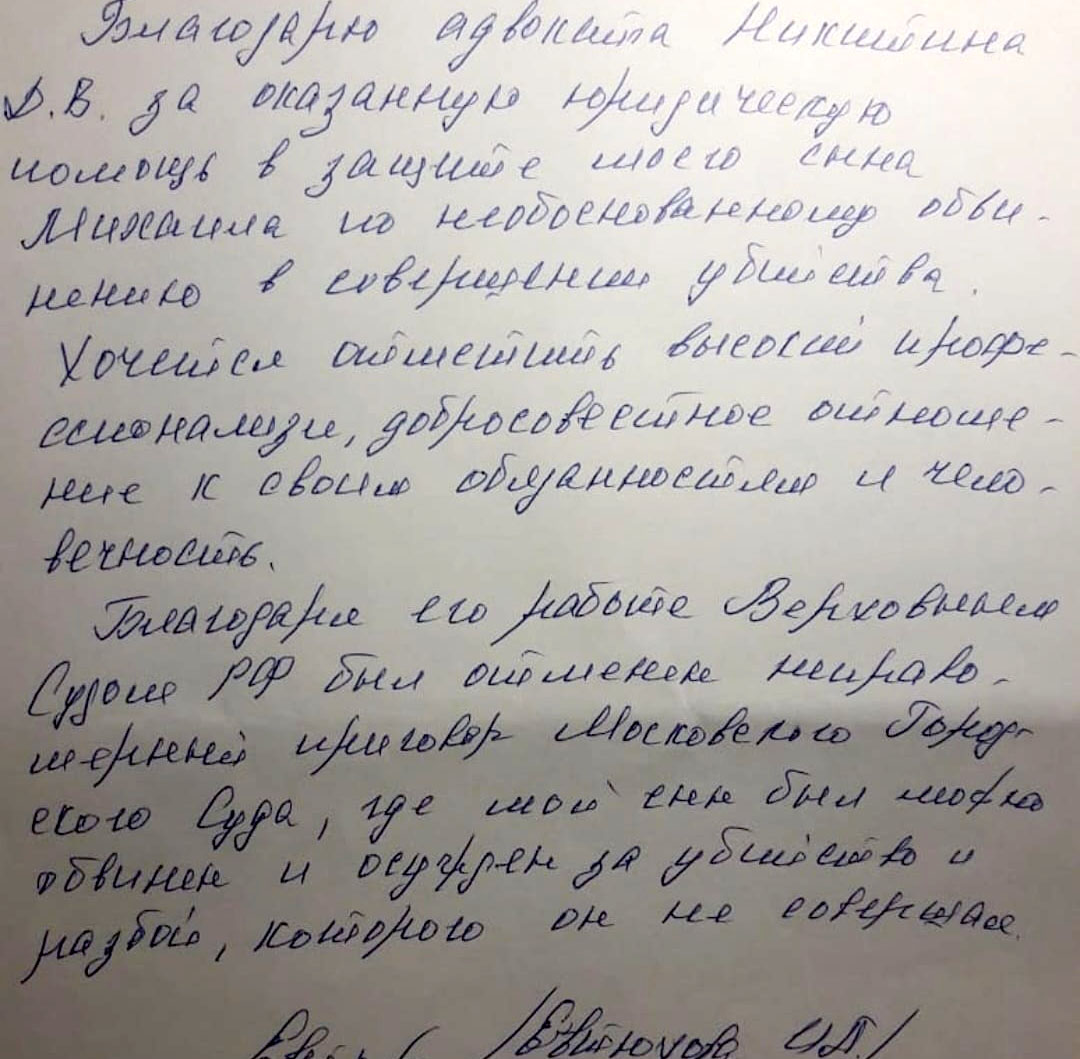 Благодарю адвоката Никитина
Д.В. за оказанную юридическую
помощь в защите моего сына
Михаила по необоснованному обви-
нению в совершении убийства.
Хочется отметить высокий профе-
ссионализм, добросовестное отноше-
ние к своим обязанностям и чело-
вечность.
Благодаря его работе Верховным
Судом РФ был отменен неправо-
мерный приговор Московского Город-
ского Суда, где мой сын был
обвинен и осужден за убийство и
разбой, которого он не совершал.